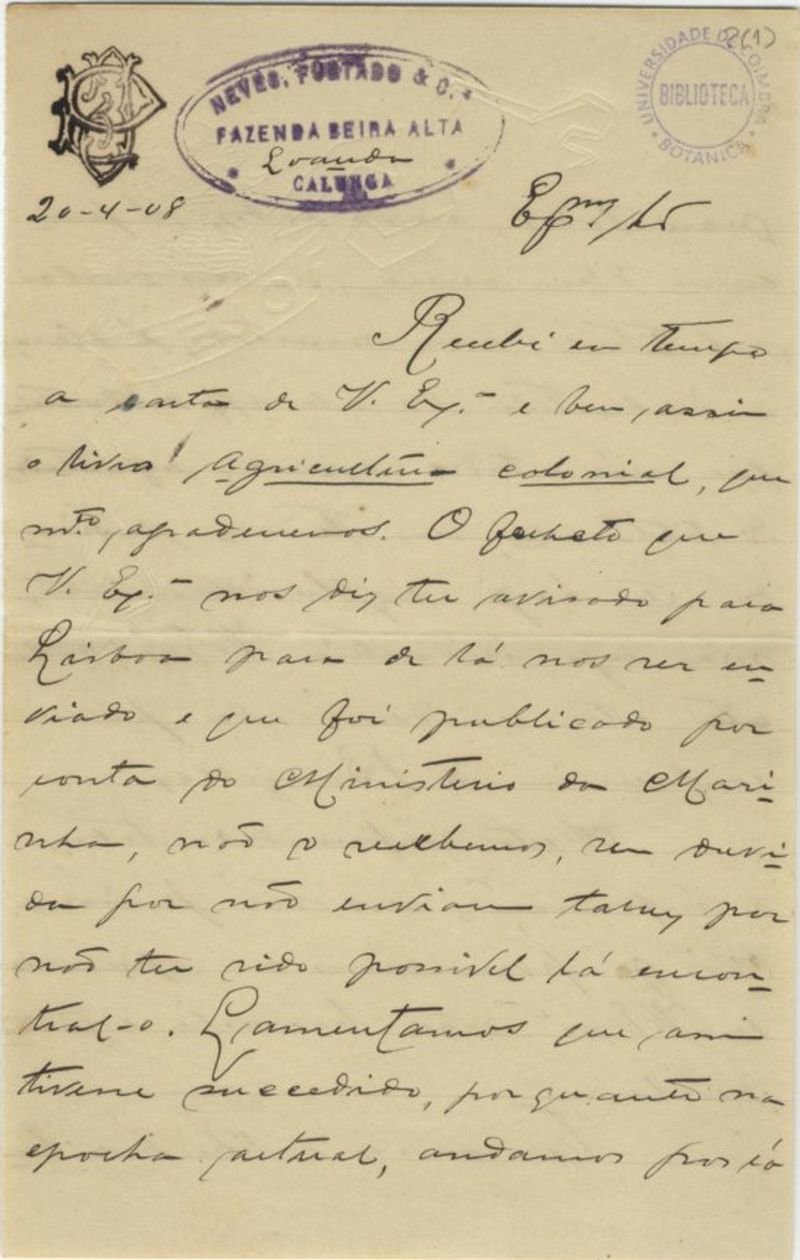 2(1)
UNIVERSIDADE DE COIMBRA
BIBLIOTECA
BOTANICA
NEVES, FURTADO & C.ª
FAZENDA BEIRA ALTA
Loanda
CALUNGA
20-4-08
Exmº Sr
Recebi em tempo
a carta de V. Ex.ª e bem assim
o livro Agricultura colonial, que
mtº agradecemos. O folheto que
V. Ex.ª nos diz ter avisado para
Lisboa para de lá nos ser en-
viado e que foi publicado por
conta do Ministerio da Mari-
nha, não o recebemos, sem duvi-
da por não enviam talvez por
não ter sido possivel lá encon-
tral-o. Lamentamos que assim
tivesse succedido, porquanto na
epocha actual, andamos por cá